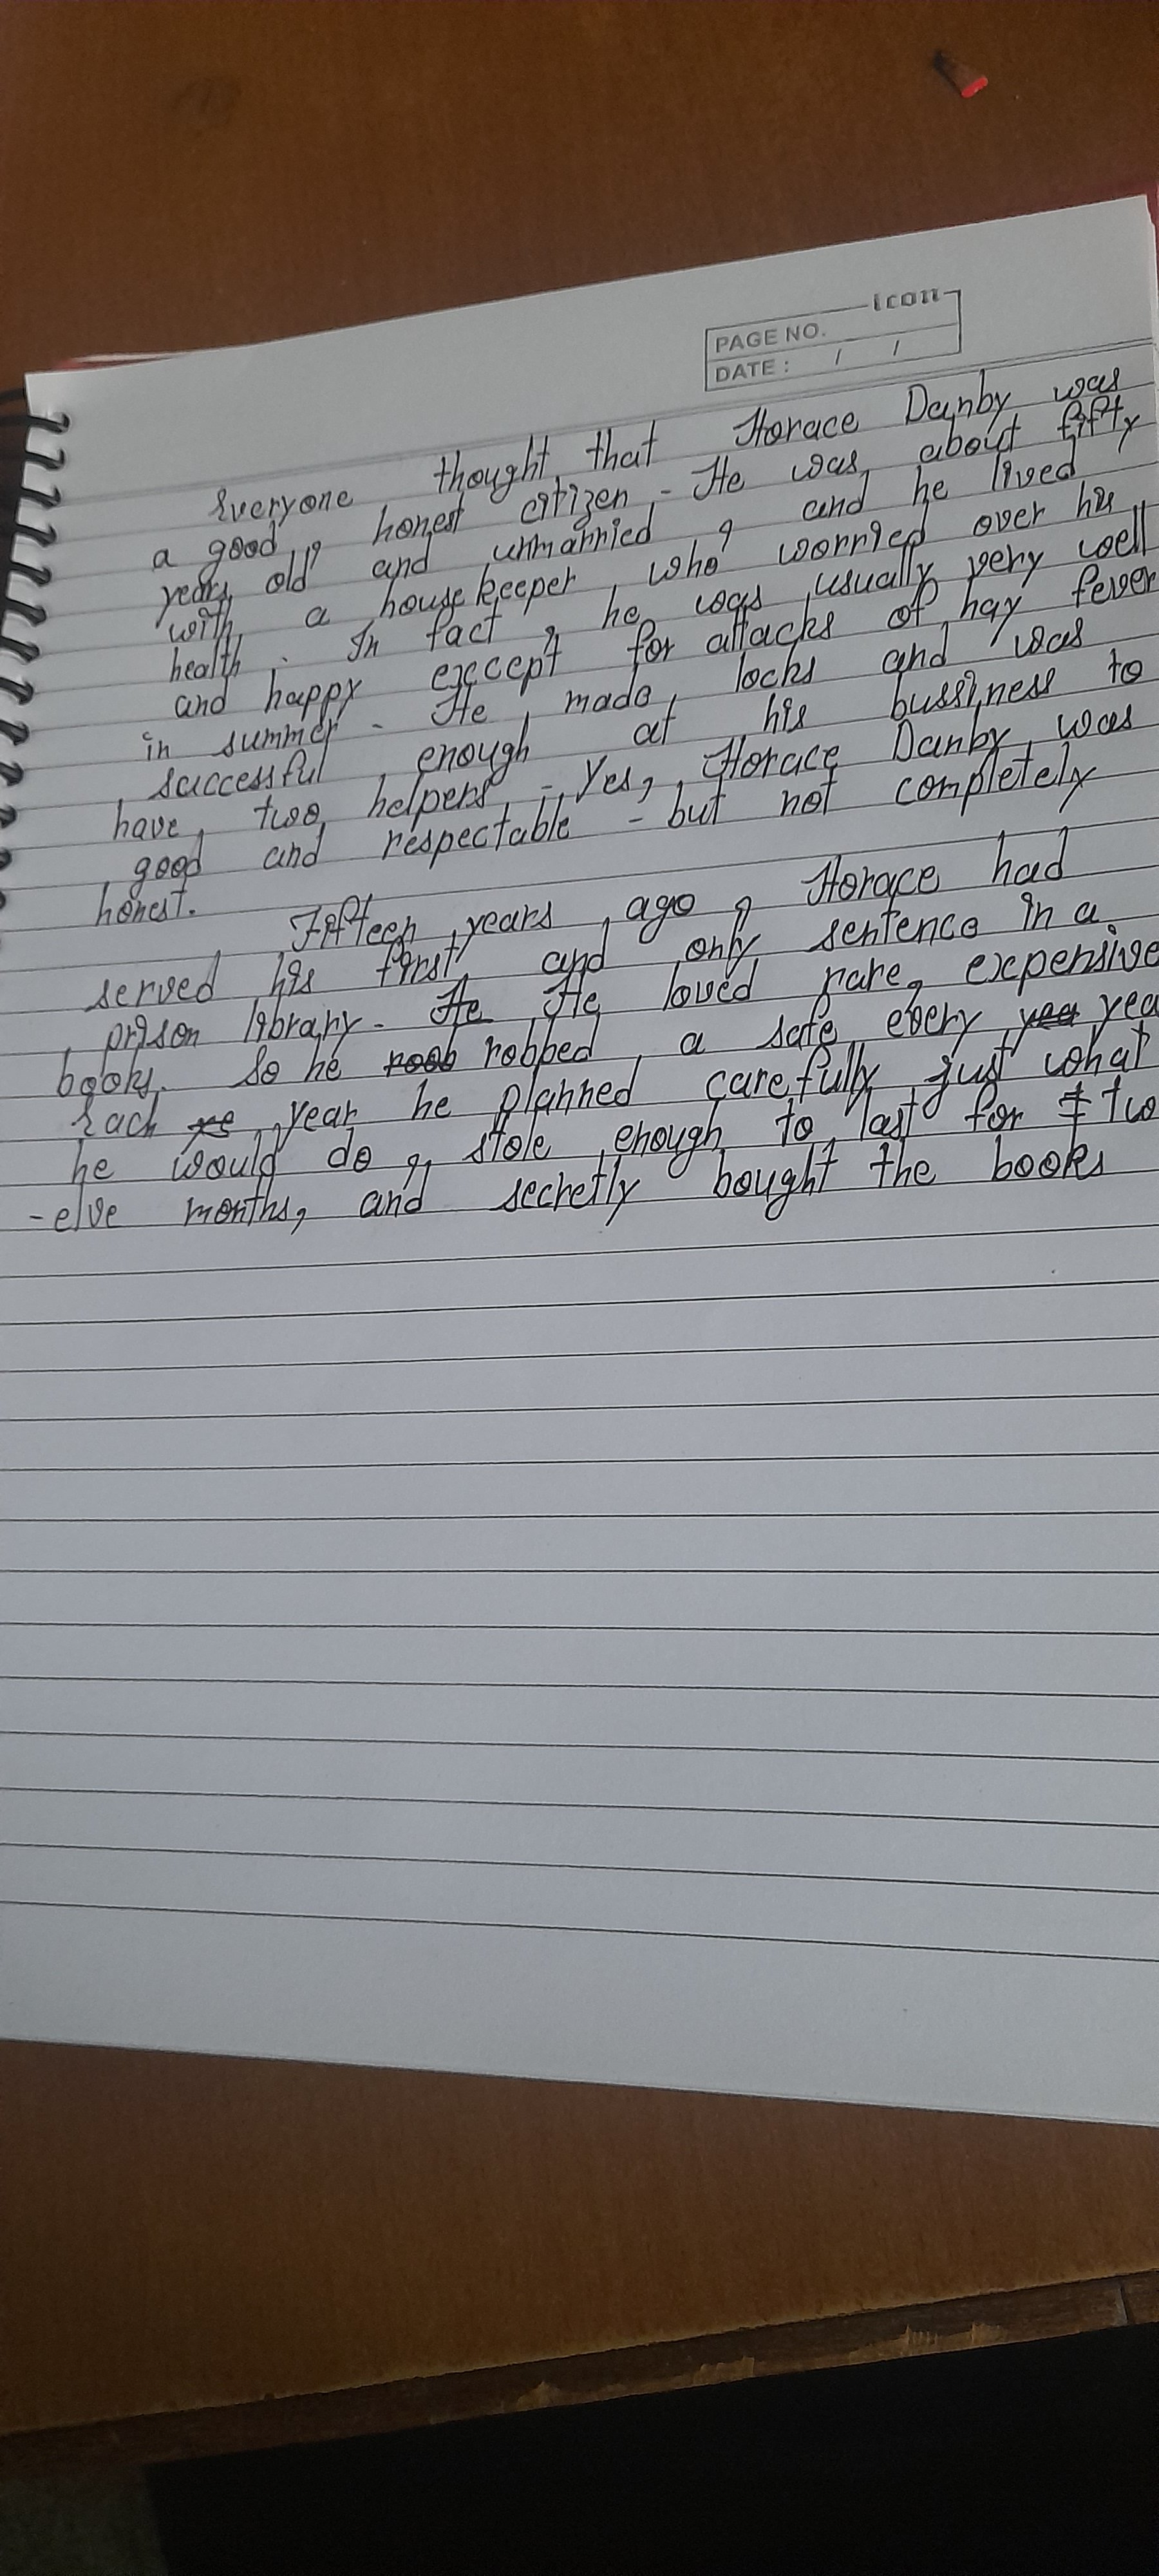 icon
PAGE NO.
DATE : / /
Everyone thought that Horace Danby was
a good, honest citizen. He was about fifty
years old and unmarried, and he lived
with a housekeeper who worried over his
health. In fact, he was usually very well
and happy except for attacks of hay fever
in summer. He made locks and was
successful enough at his bussiness to
have two helpers. Yes, Horace Danby was
good and respectable - but not completely
honest.
Fifteen years ago, Horace had
served his first and only sentence in a
prison library. He He loved rare, expensive
books. So he roob robbed a safe every yea yea
Each ye year he planned carefully just what
he would do, stole enough to last for t tw
-elve months, and secretly bought the books